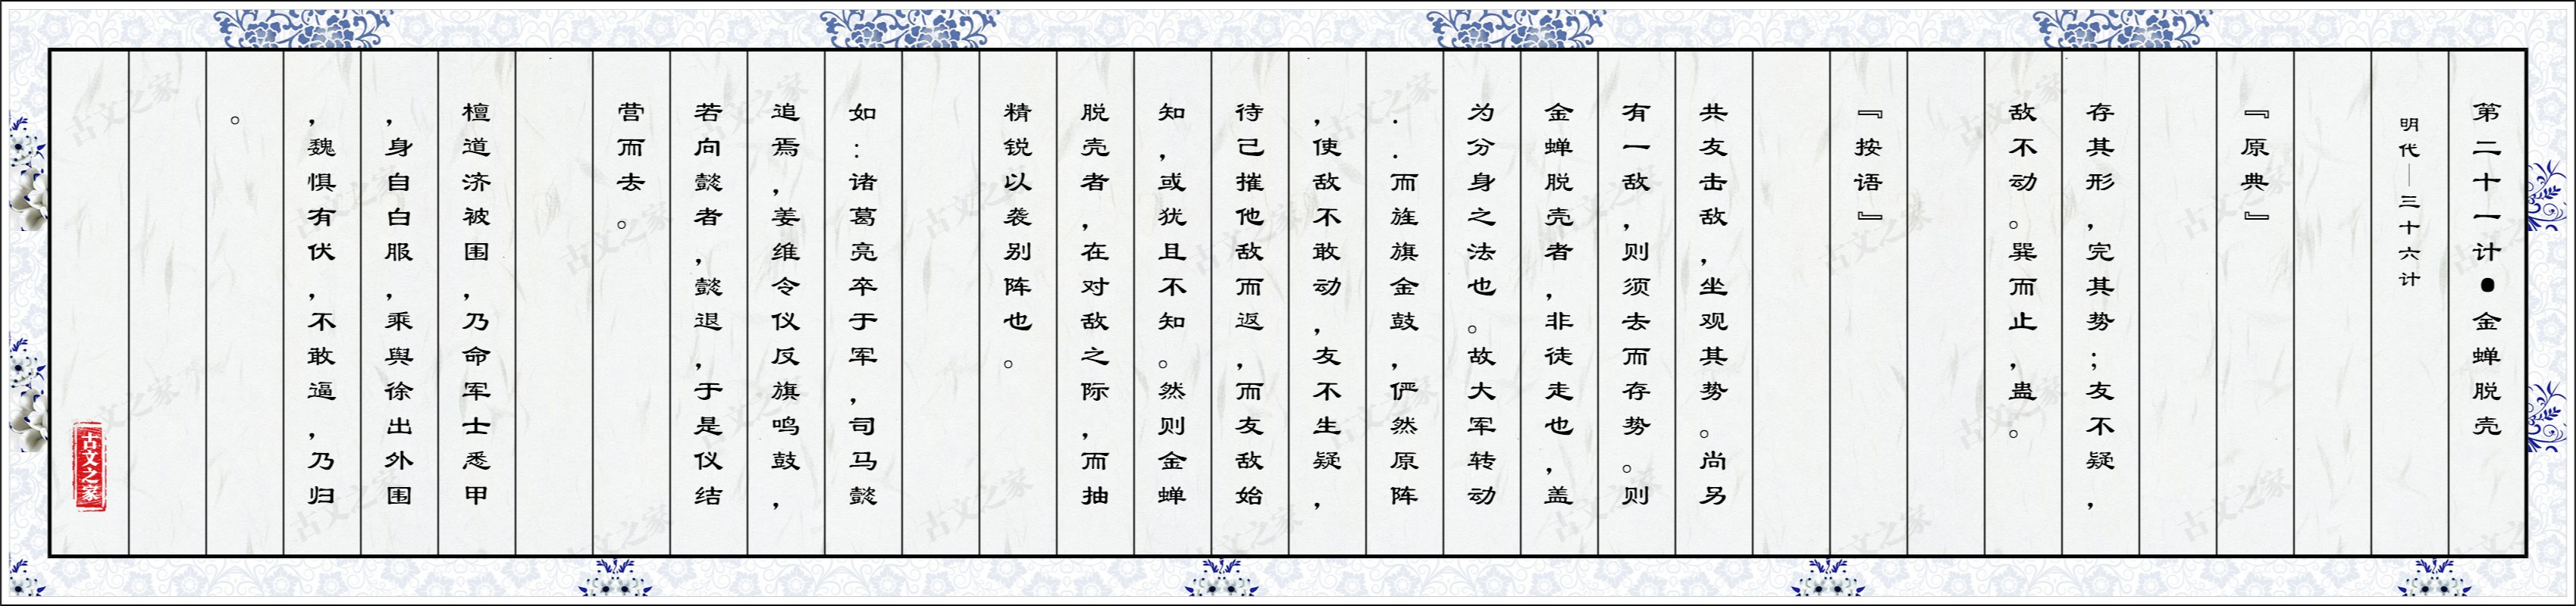 第二十一计●金蝉脱壳
明代—三十六计
『原典』
存其形，完其势；友不疑，
敌不动。巽而止，蛊。
『按语』
共友击敌，坐观其势。尚另
有一敌，则须去而存势。则
金蝉脱壳者，非徒走也，盖
为分身之法也。故大军转动
．．而旌旗金鼓，俨然原阵
，使敌不敢动，友不生疑，
待己摧他敌而返，而友敌始
知，或犹且不知。然则金蝉
脱壳者，在对敌之际，而抽
精锐以袭别阵也。
如：诸葛亮卒于军，司马懿
追焉，姜维令仪反旗鸣鼓，
若向懿者，懿退，于是仪结
营而去。
檀道济被围，乃命军士悉甲
，身自白服，乘舆徐出外围
，魏惧有伏，不敢逼，乃归
。
古文之家